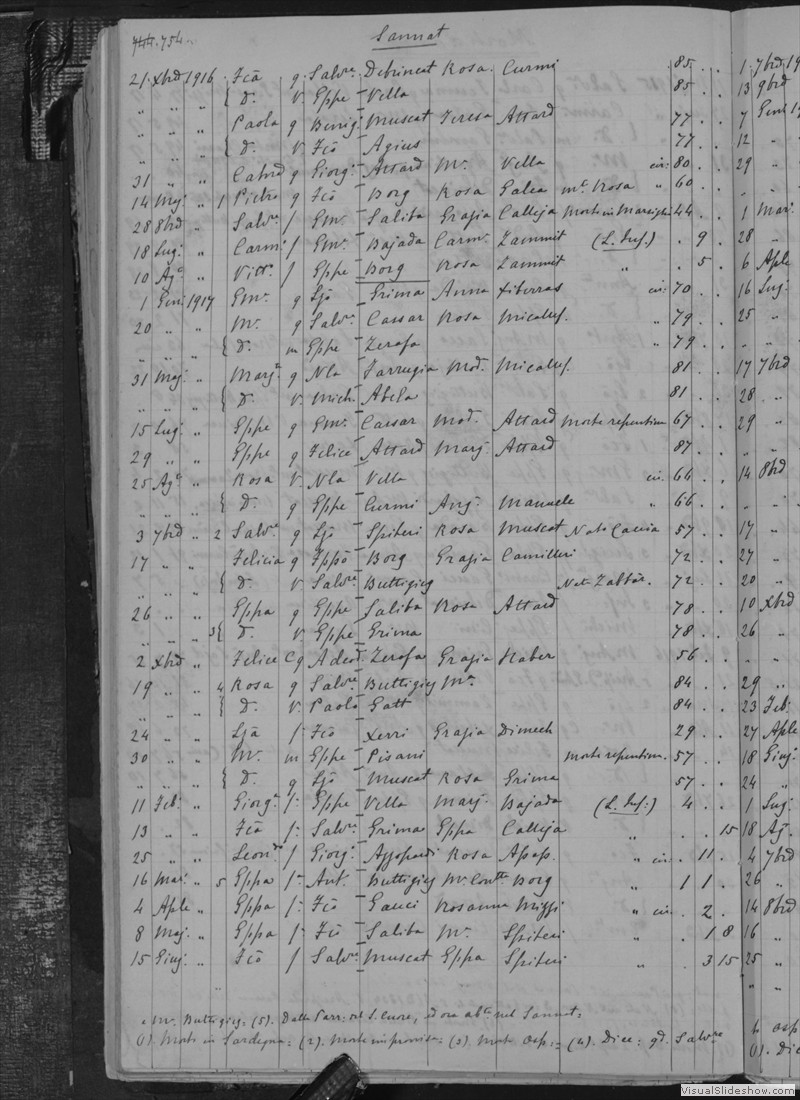 754
Sannat
21 Xbrd 1916 Fcã g Salv.re Debrincat Rosa Curmi 85 . . 1 7brd 19
„ „ „ { d. V Eppe Vella 85 . . 13 9brd
„ „ Paola g Benig. Muscat Teresa Attard 77 . . 7
„ „ „ { d. V Fcõ Agius 77 . . 12 „
31 „ „ g Giorg. Attard M.a Vella cir. 80 . . 29 „
14 Mag. „ 1 Pietro g Fcõ Borg Rosa Galea m.e Rosa „ 60 . . „ „
28 8brd „ Salv.re f Em. Saliba Grazia Calleja 44 . . 1 Mar.
18 Lug. „ Carm. f Em. Bajada Carm. Zammit (L. Inf.) . 9 . 28 „
10 Ag. „ Vitt. f Eppe Borg Rosa Zammit „ . 5 . 6 Aple
1 1917 Em. g Ljõ Grima Anna Xiberras cir. 70 . . 16 Lug.
20 „ „ M.a g Salv.re Caesar Rosa Micallef. „ 79 . . 25 „
„ „ „ { d. m Eppe Zerafa „ 79 . . „ „
31 Mag. „ Marj. g Nla Farrugia Mod. Micallef. 81 . . 17 7brd
„ „ „ { d. V. Mich. Abela 81 . . 28 „
15 Lug. „ Eppe g Em. Caesar Mod. Attard Morte repentina 67 . . 29 „
29 „ „ Eppe g Felice Attard Marj. Attard 87 . . „ „
25 Ag. „ Rosa V. Nla Vella cir. 66 . . 14 8brd
„ „ { d. g Eppe Curmi Ang. Mamuele „ 66 . . „ „
3 7brd „ 2 Salv. g Ljõ Spiteri Rosa Muscat Nato Caccia 57 . . 17 „
17 „ „ Felicia g Borg Grazia Camilleri 72 . . 27 „
„ „ { d. V Salv.re Buttigieg Nata Zabbar. 72 . . 20 „
26 „ „ Eppa g Eppe Saliba Rosa Attard 78 . . 10 Xbrd
„ „ „ 3 { d. V Eppe Grima 78 . . 26 „
2 Xbrd „ Felice C g Adeod. Zerafa Grazia Haber 56 . . „ „
19 „ „ 4 Rosa g Salv.re Buttigieg M.a 84 . . 29 „
„ „ „ { d. V. Paolo Gatt 84 . . 23 Feb.
24 „ „ Ljã f. Fcõ Xerri Grazia Dimech 29 . . 27 Aple
30 „ „ M.a m Eppe Pisani Morte repentina. 57 . . 18 Giug.
„ „ „ { d. g Ljõ Muscat Rosa Grima 57 . . 24 „
11 Feb. „ Giorg. f. Eppe Vella Marj. Bajada (L. Inf.) 4 . . 1 Lug.
13 „ „ Fcã f. Salv. Grima Eppa Calleja „ . . 15 18 Ag.
25 „ „ Leon. f Giorg. Azzopardi Rosa „ cir. . 11 . 4 7brd
16 Mar. „ 5 Eppa f. Ant. Buttigieg Borg „ 1 1 . 26 „
4 Aple „ Eppa f. Fcõ Gauci Rosanna Mizzi „ cir. . 2 . 14 8brd
8 Mag. „ Eppa f. Fcõ Saliba M.a Spiteri „ . 1 8 16 „
15 Giug. „ Fcã f Salv. Muscat Eppa Spiteri „ . 3 15 25 „
M.a Buttigieg= (5). Dalla Parr: del S. Cuore, ed ora ab.te nel Sannat=
(1). Morto in Sardegna= (2). Morte improvisa= (3). Morta Osp:= (4). Dice: gd. Salv.re
VisualSlideshow.com